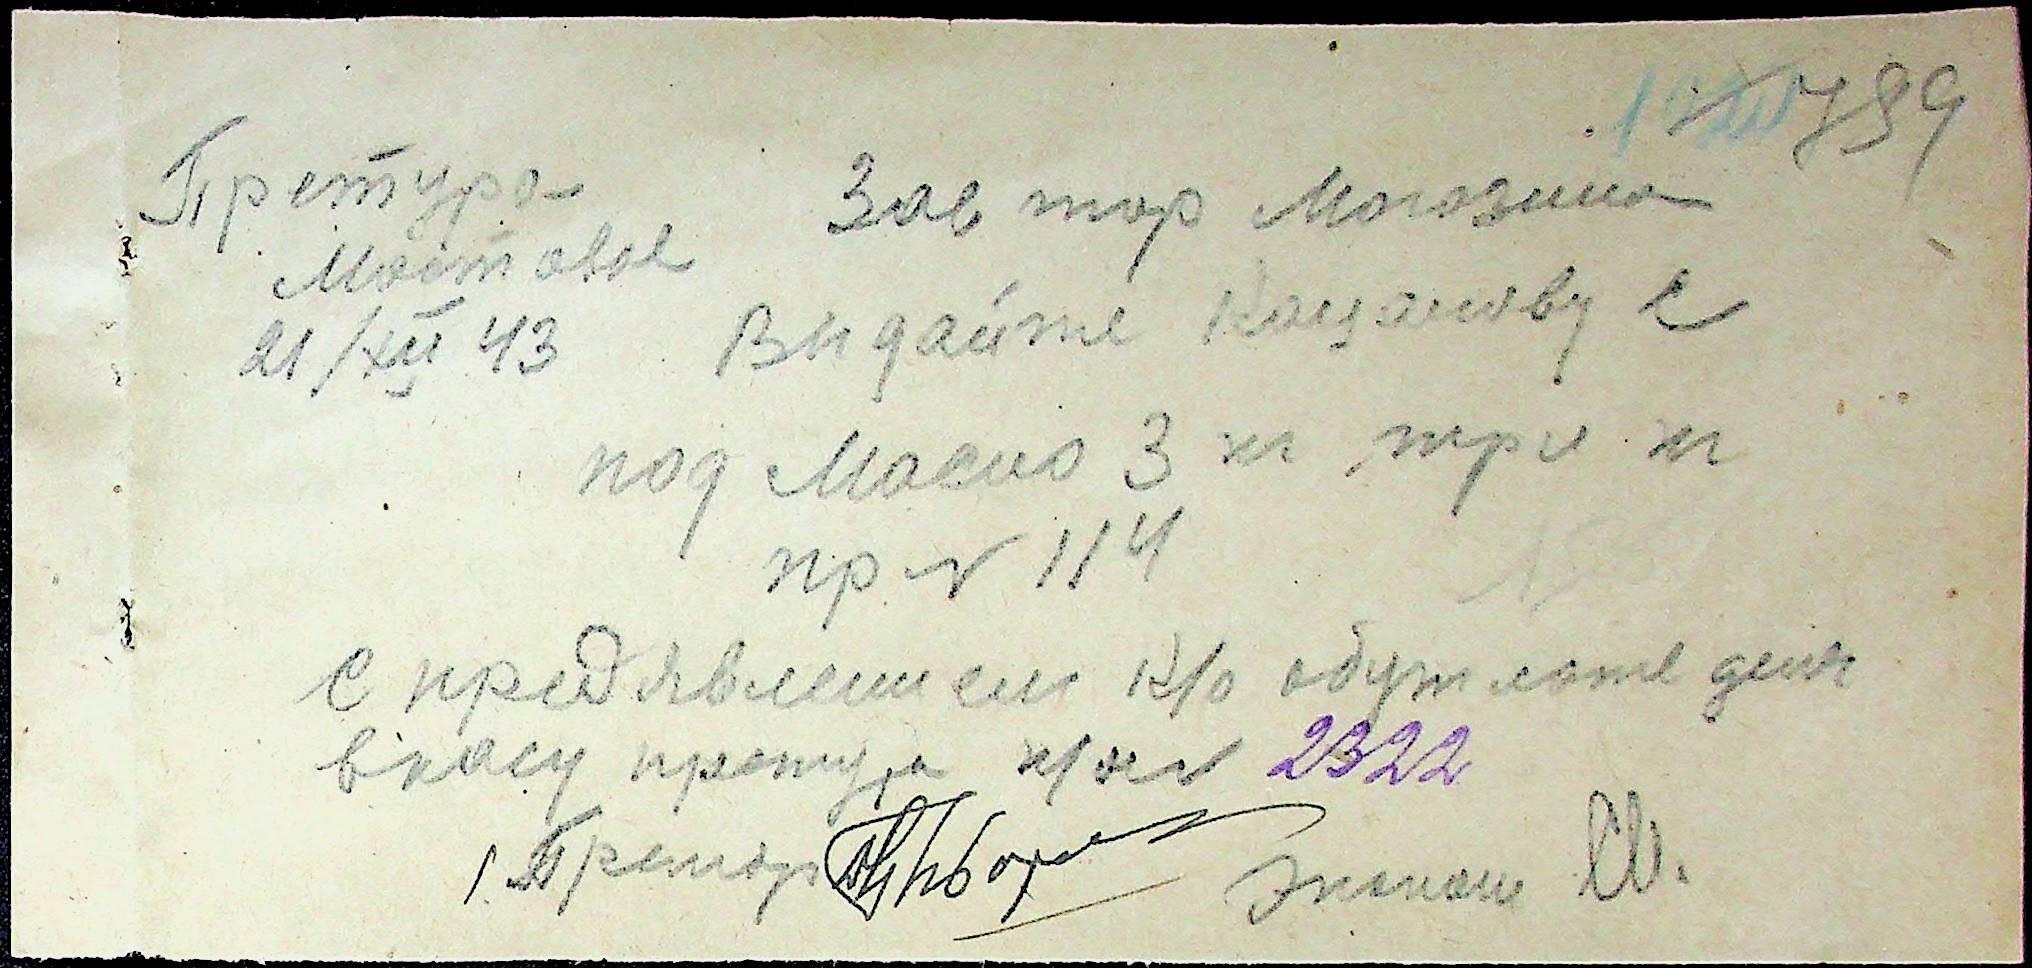 789
Претура
Мостовое
21/XII 43
Зав тор Могозина
Выдайте Кощанову С
под Масло 3 кг три кг
пр № 114
с предявлением К/о обуплоте денг
в касу претура к/ж № 2322
Г. Претор
Эконом